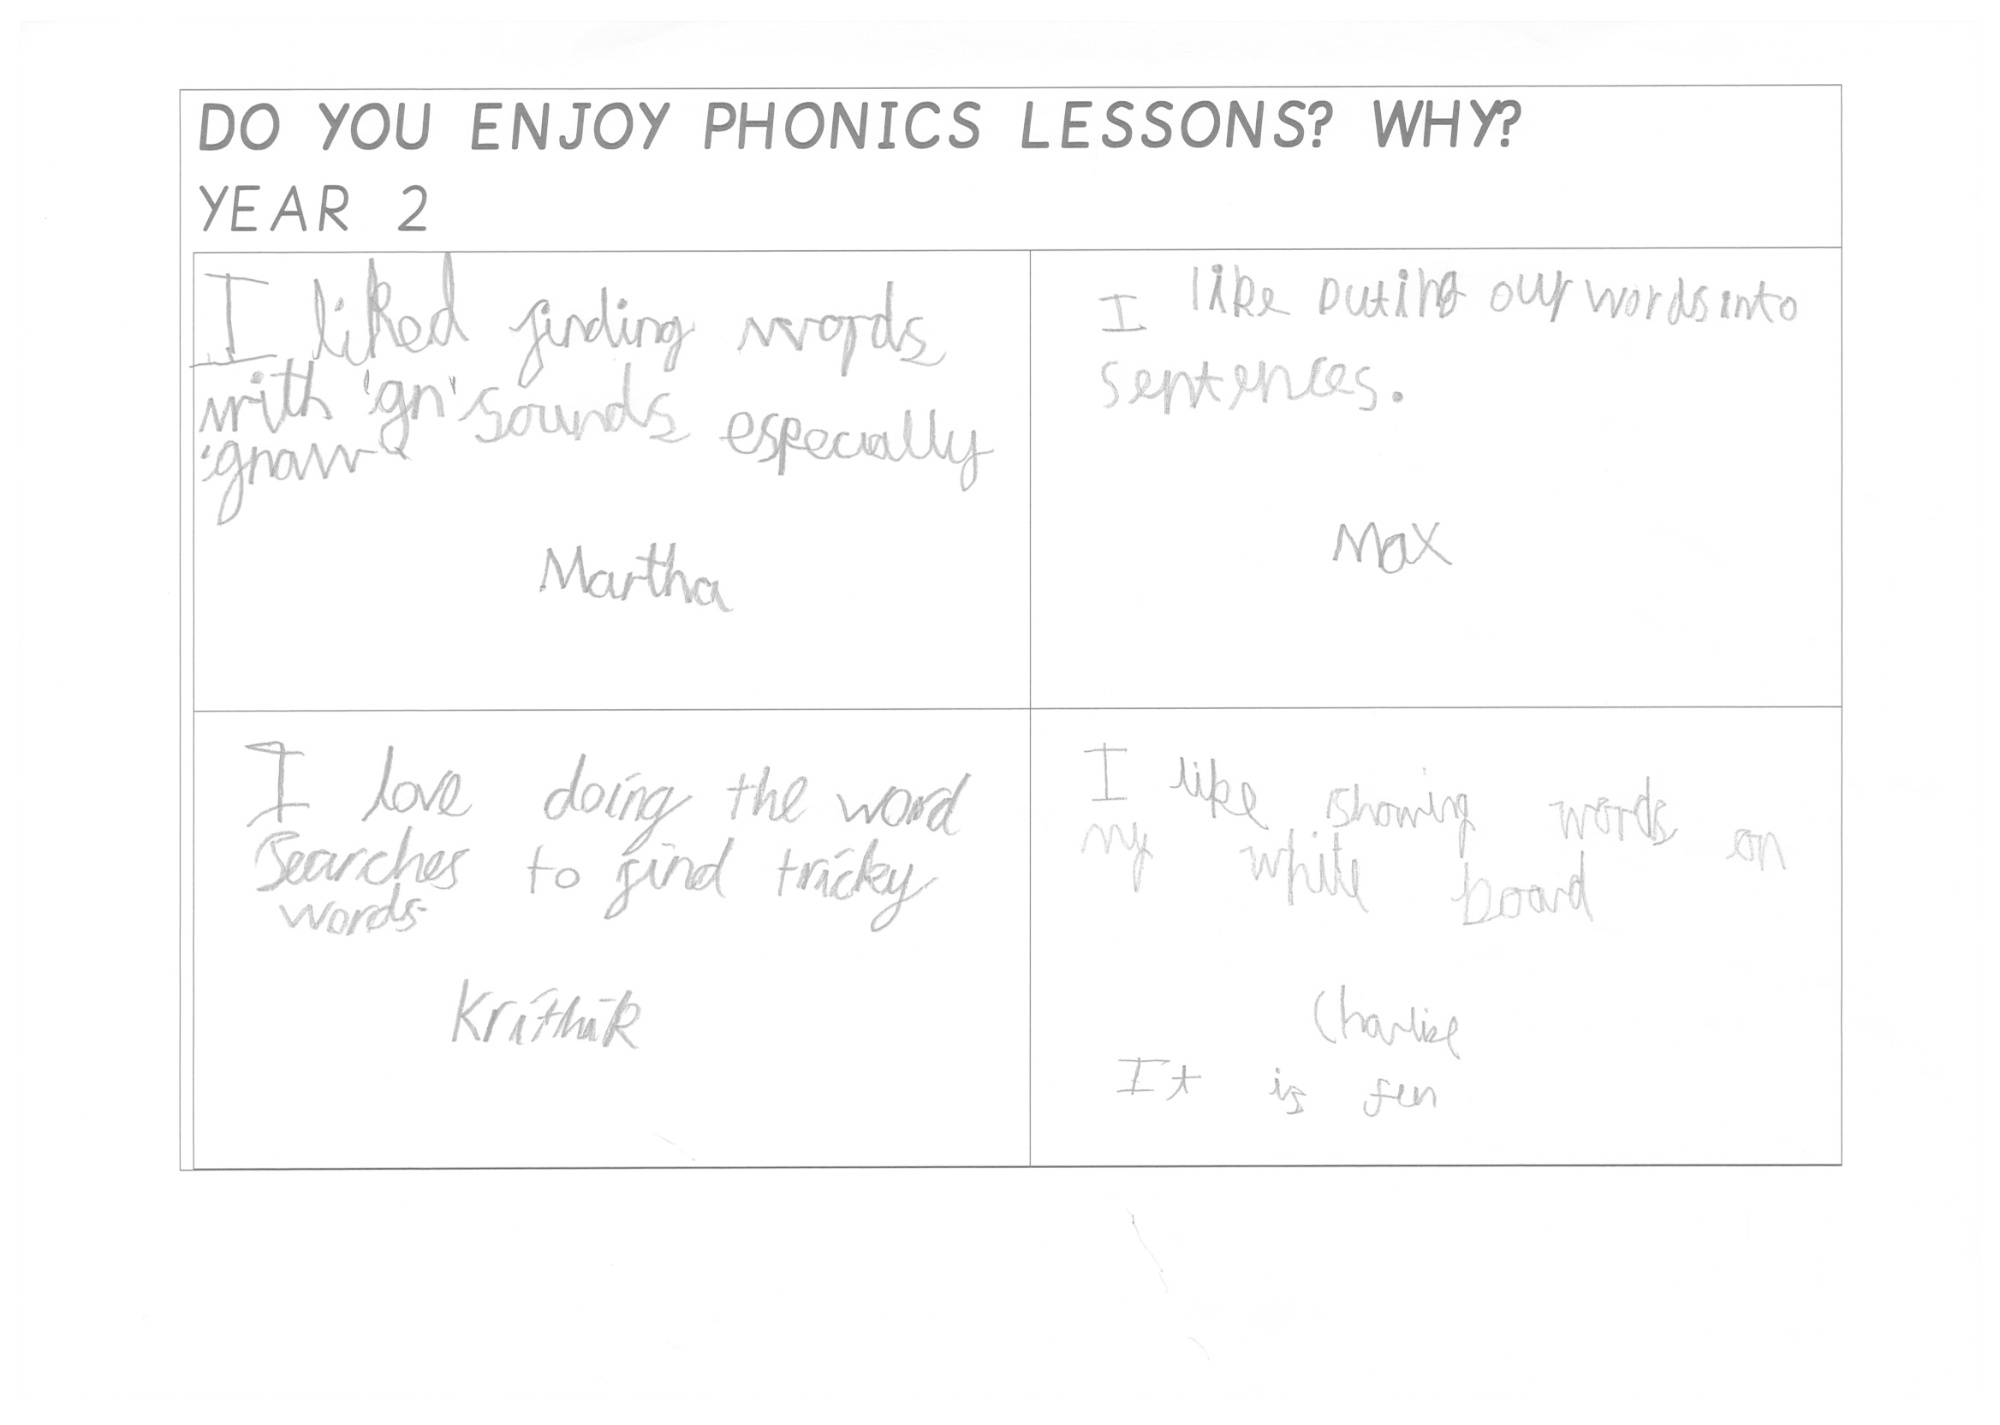 DO YOU ENJOY PHONICS LESSONS? WHY?
YEAR 2
I liked finding words
with 'gn' sounds especially
'gnaw'
Martha
I like puting our words into
sentences.
Max
I love doing the word
Searches to find tricky
words.
Krithik
I like showing words on
my white board
Charlise
It is fun